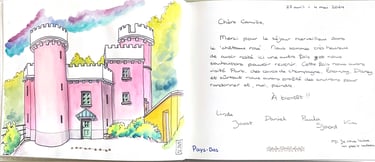 27 avril - 4 mai 2024
Chère Camille,
Merci pour le séjour merveilleux dans
le "château rose". Nous sommes très heureux
d'avoir passé ici une autre fois que nous
souhaitons pouvoir revenir. Cette fois nous avons
visité Paris, des caves de champagne, Épernay, Disney
et surtout nous avons profité des environs pour
randonner et, moi, peindre.
À bientôt !!
Linda
Joost Daniel Paula
Sjoerd Kim
Pays-Bas